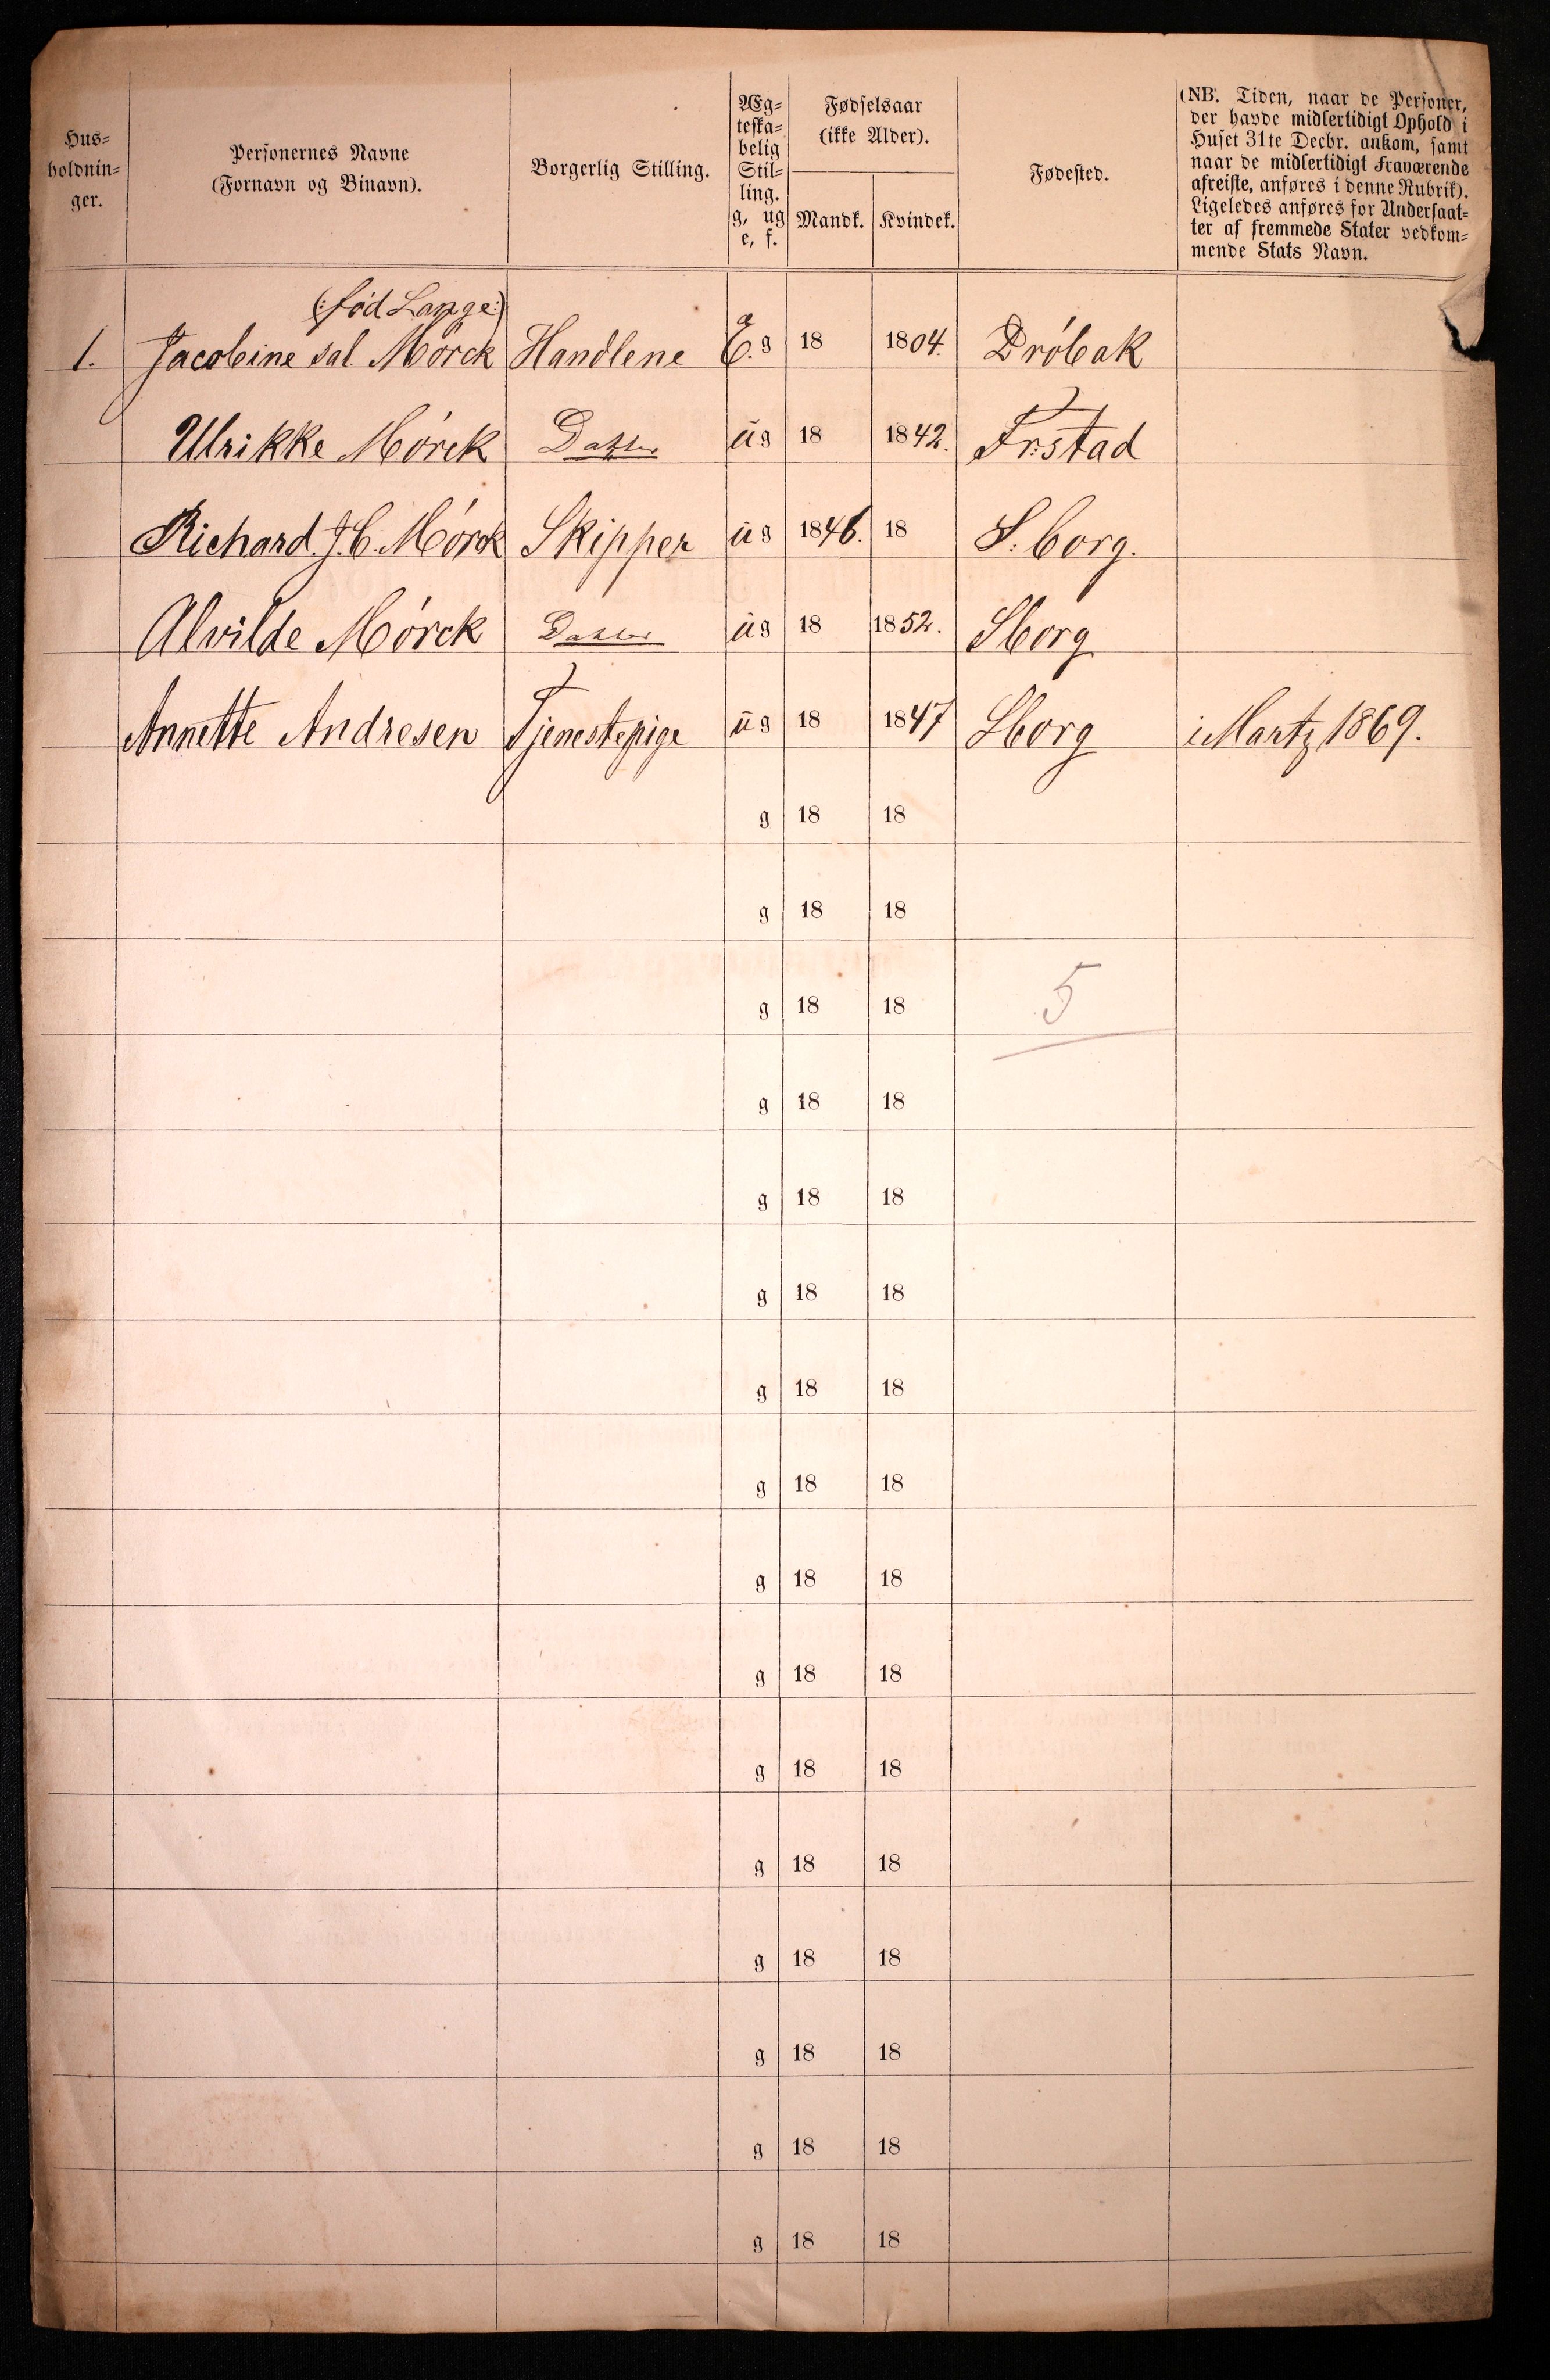 Hus=
holdnin=
ger.
Personernes Navne
(Fornavn og Binavn).
Borgerlig Stilling.
Æg=
teska=
belig
Stil=
ling.
g, ug
e, f.
Fødselsaar
(ikke Alder).
Mandk. Kvindek.
Fødested.
(NB. Tiden, naar de Personer,
der havde midlertidigt Ophold i
Huset 31te Decbr. ankom, samt
naar de midlertidigt Fraværende
afreiste, anføres i denne Rubrik).
Ligeledes anføres for Undersaat=
ter af fremmede Stater vedkom=
mende Stats Navn.
(: fød Lange :)
1. Jacobine sal. Mørck Handlene E. g 18 1804. Drøbak
Ulrikke Mørck Datter ug 18 1842. Fr:stad
Richard J. C. Mørck Skipper ug 1846. 18 S:borg.
Alvilde Mørck Datter ug 18 1852. Sborg
Annette Andresen Tjenestepige ug 18 1847 Sborg i Martz 1869.
g 18 18
g 18 18
g 18 18 5
g 18 18
g 18 18
g 18 18
g 18 18
g 18 18
g 18 18
g 18 18
g 18 18
g 18 18
g 18 18
g 18 18
g 18 18
g 18 18